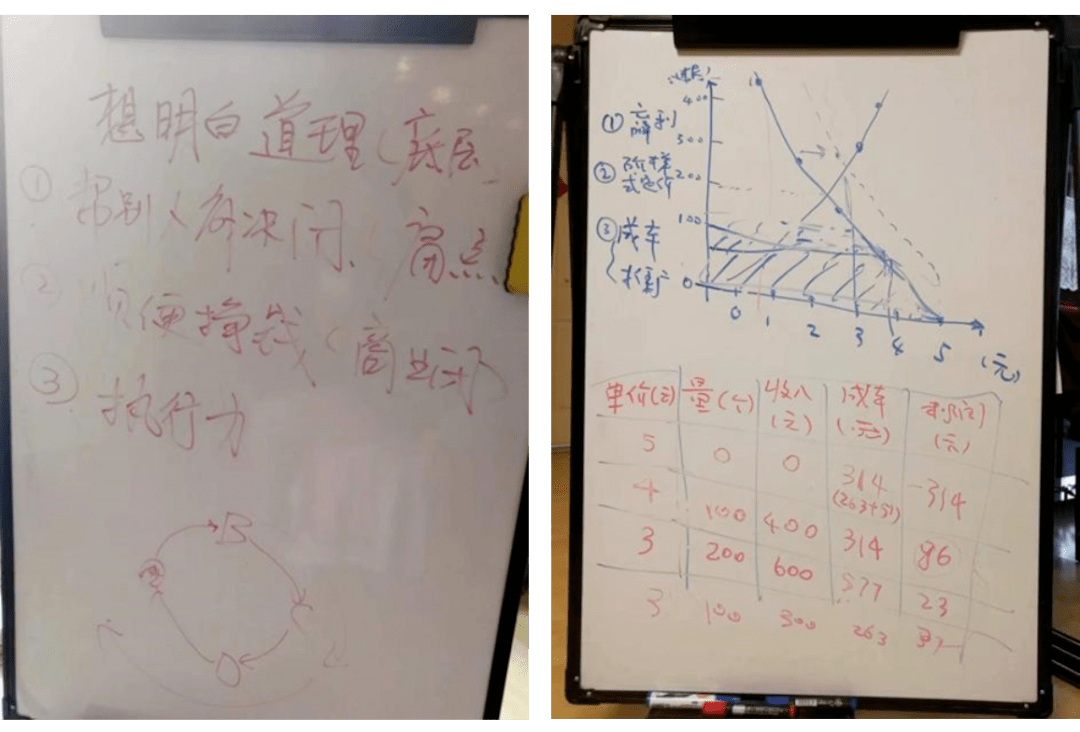 想明白道理(底层
① 帮别人解决问 高点
② 顺便挣钱(商业
③ 执行力
B
D
400
① 高利
300
② 阶梯 200
式定价
100
③ 成本
0
0 1 2 3 4 5 (元)
单价(元) 量(个) 收入(元) 成本(元) (元)
5 0 0 314 (263+51) -314
4 100 400 314 86
3 200 600 577 23
3 100 300 263 37